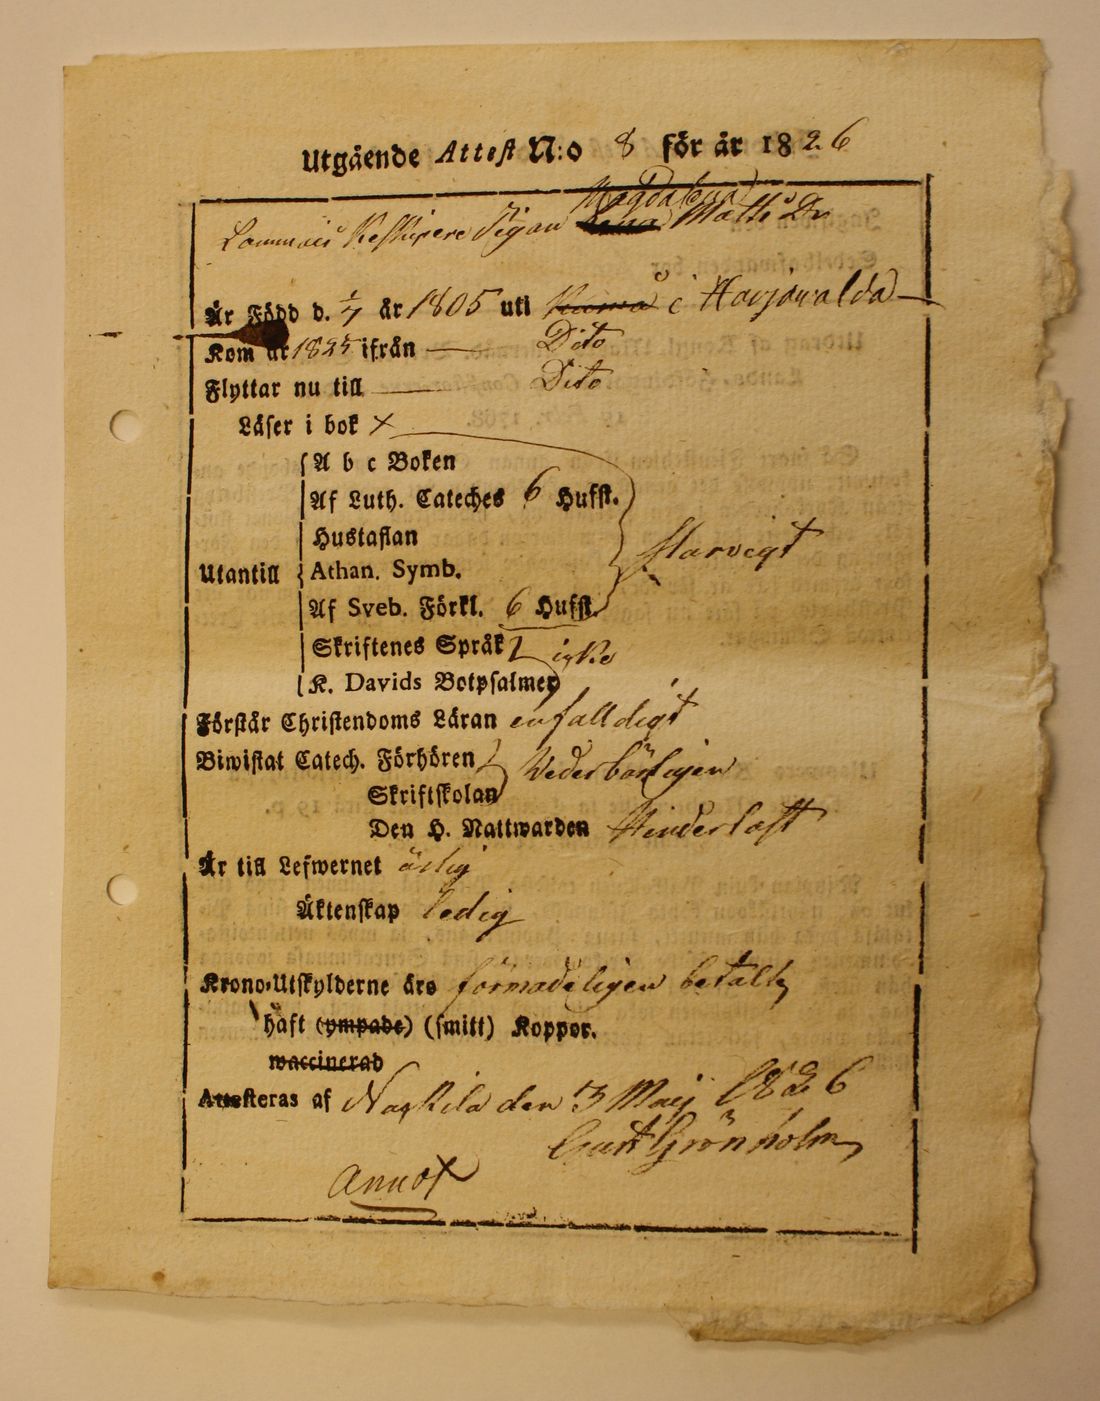 Utgående Attest N:o 8 för år 1826
Magdalena
Pigan Lena Matts Dr
Är Född d. 1/7 år 1805 uti i Harjawalda
Kom år 1825 ifrån — Dito
Flyttar nu till — Dito
Läser i bok x
A b c Boken
Af Luth. Cateches 6 Hufst.
Hustaflan
Utantill Athan. Symb. Starvegt
Af Sveb. Förkl. 6 Hufst.
Skriftenes Språk icke
K. Davids Botpsalmer
Förstår Christendoms Läran enfalldigt
Biwistat Catech. Förhören Vederbörligen
Skriftskolan
Den H. Nattwarden Hinderlöst
Är till Lefwernet ärlig
Äktenskap ledig
Krono-Utskylderne äro förmodeligen betalte
haft (ympade) (smitt) Koppor.
waccinerad
Attesteras af Nackila den 3 Maij 1826
Gust Grönholm
Annot